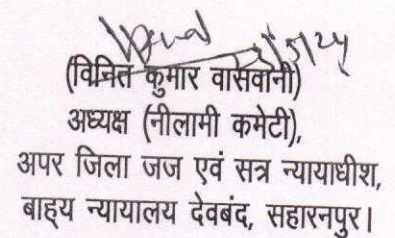 (विनित कुमार वासवानी)
अध्यक्ष (नीलामी कमेटी),
अपर जिला जज एवं सत्र न्यायाधीश,
बाह्य न्यायालय देवबंद, सहारनपुर।